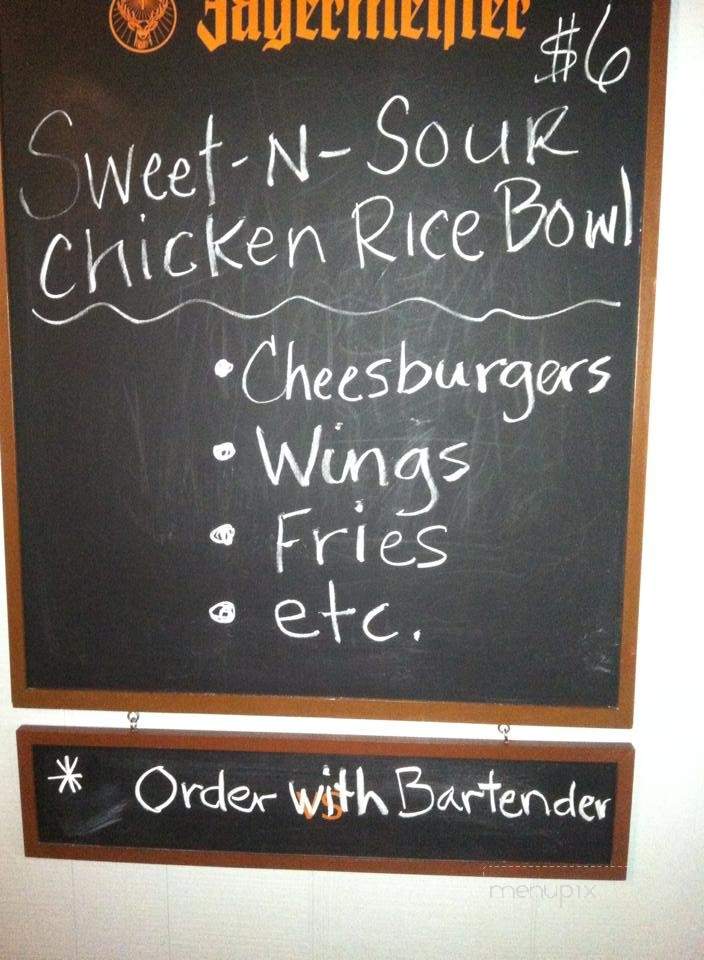 Jägermeister
$6
Sweet-N-Sour
Chicken Rice Bowl
• Cheesburgers
• Wings
• Fries
• etc.
* Order with Bartender
VS
menupix